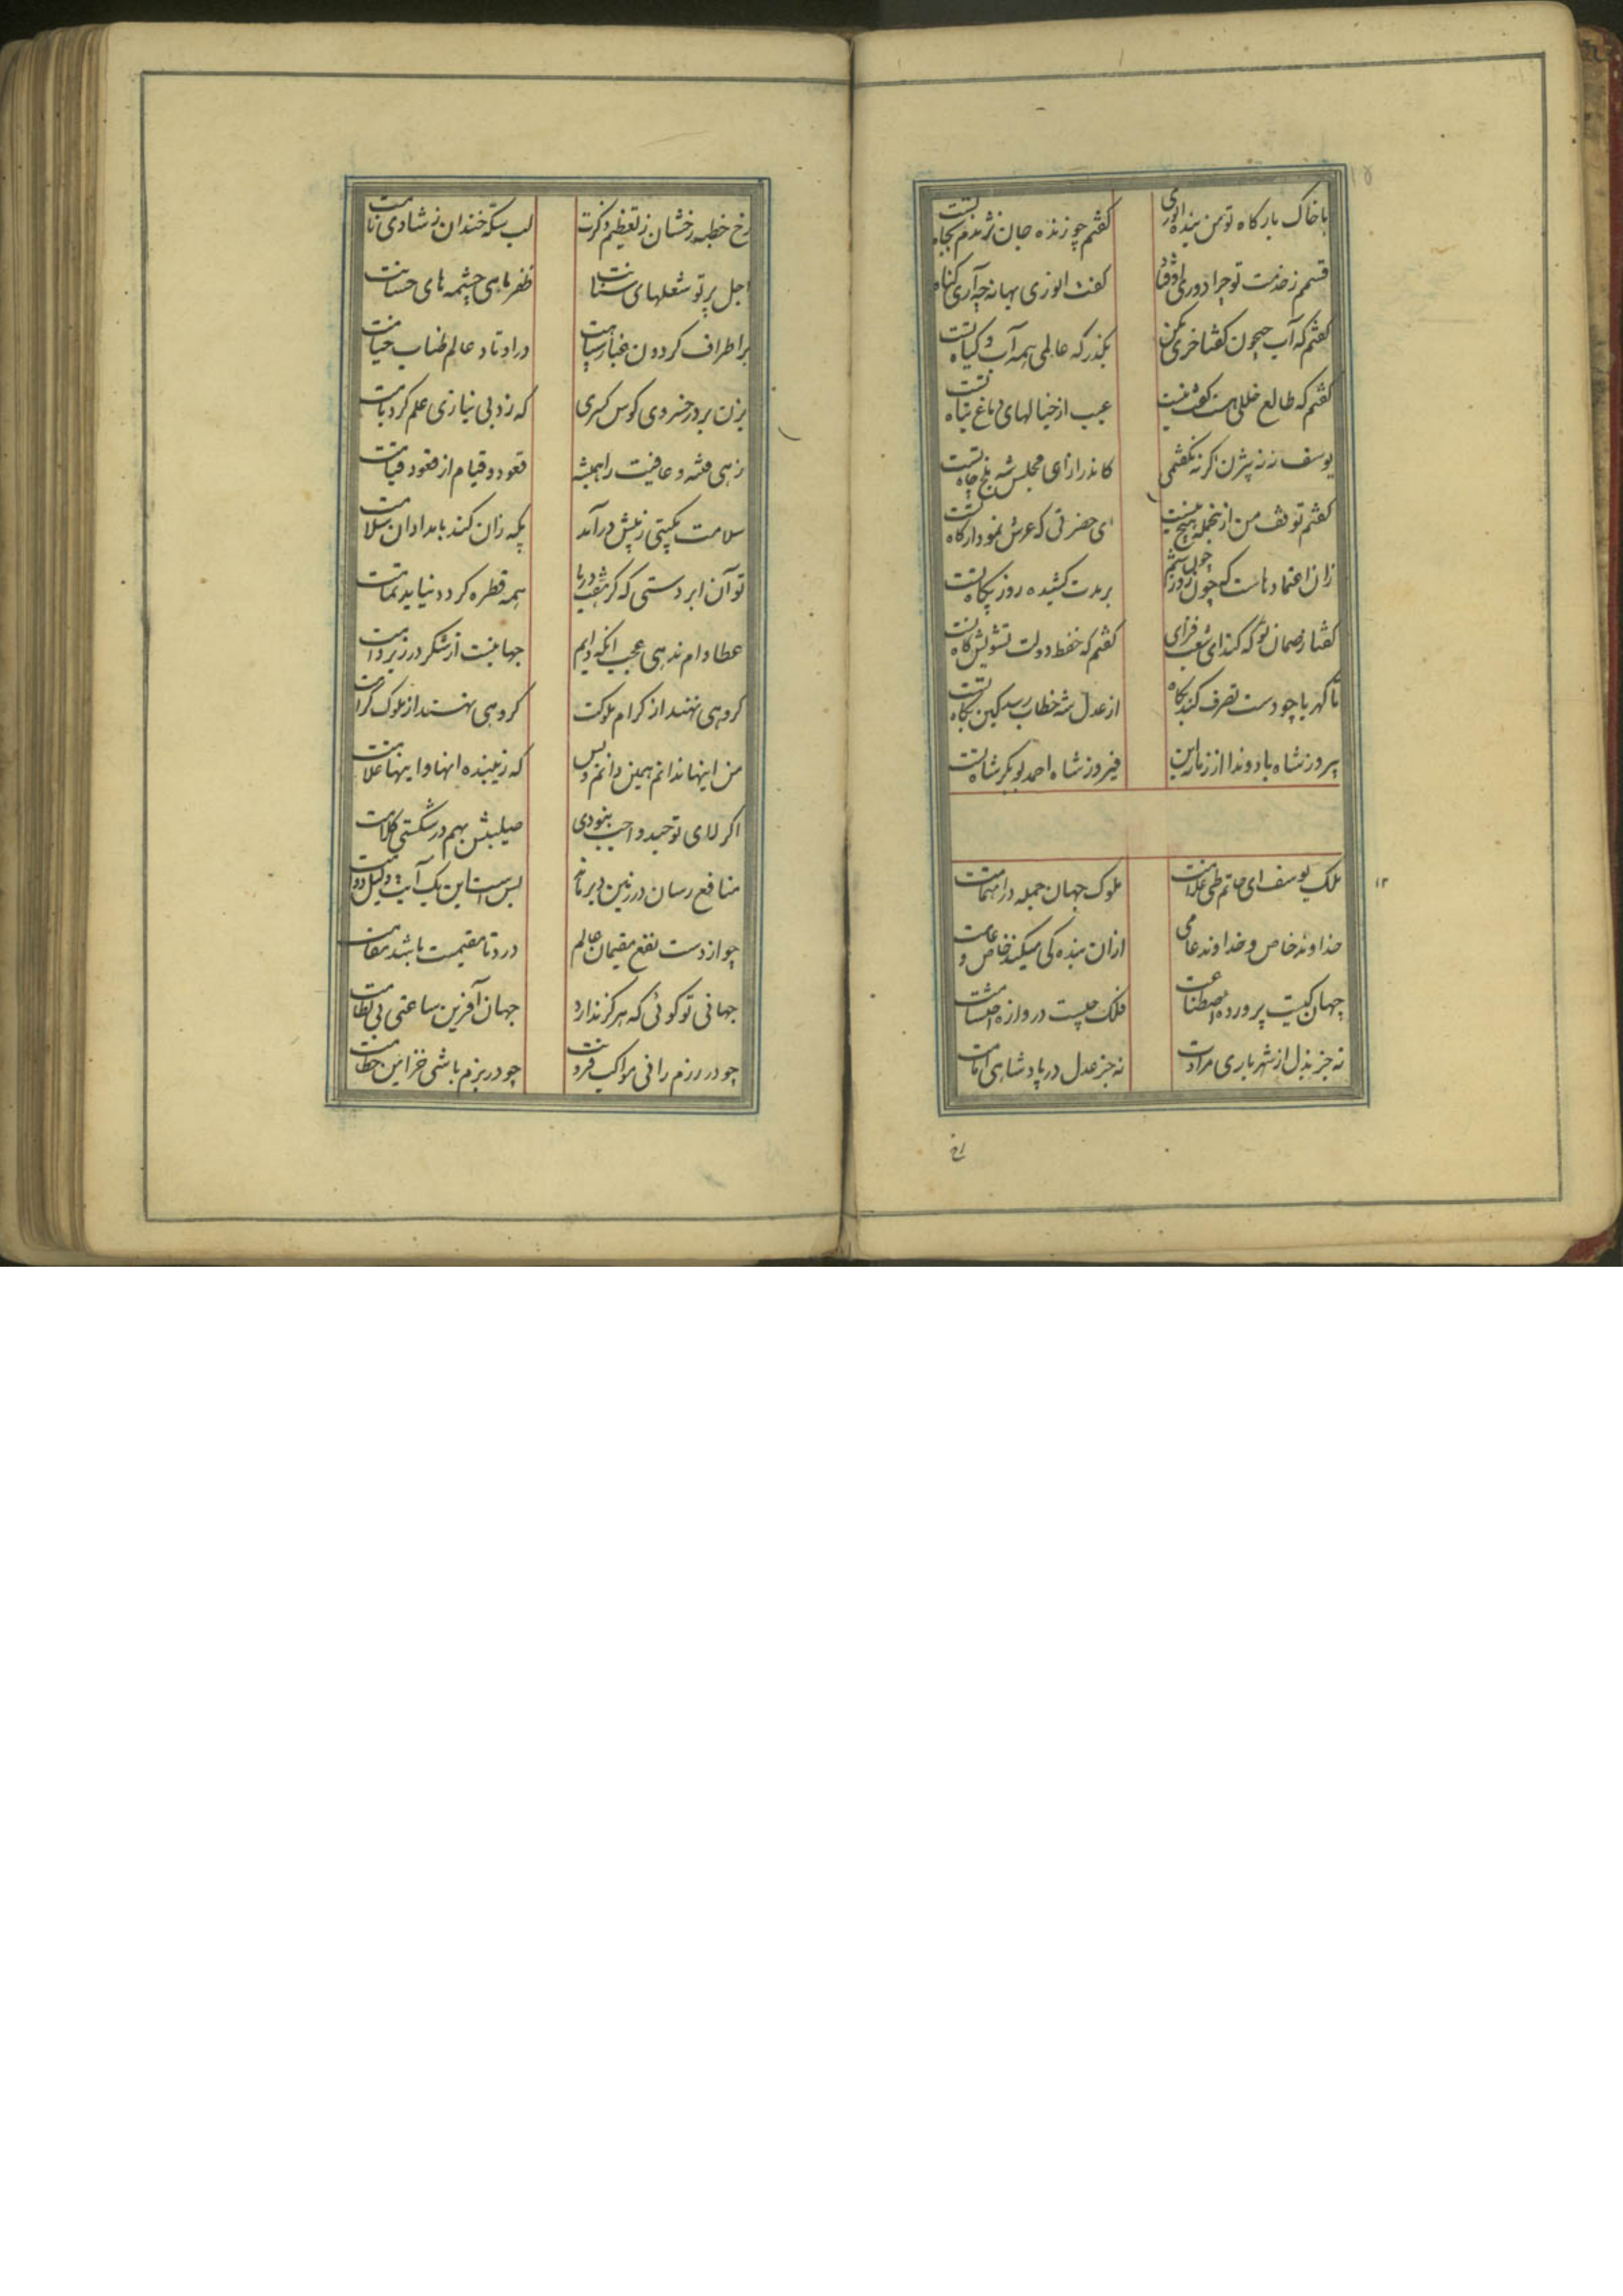 با خاک بارکاه تو من بنده انوری کفتم چو زنده جان نژندم بجاه تست
قسمم ز خدمت تو چرا دوری اوفتاد کفت انوری بهانه چه آری کناه تست
کفتم که آب جیحون کفتا خری مکن بکذر که عالمی همه آب و کیاه تست
کفتم که طالع خللی هست کفت نیست عیب از خیالهای دماغ تباه تست
یوسف نه نه بیژن اکر نه بکفتمی کاندر ازای مجلس شه بلخ چاه تست
کفتم توقف من ازینجمله هیچ نیست ای حضرتی که عرش نمودار کاه تست
زان اعتمادهاست که چون روز بر درت کشیده روز بیکاه تست
کفتا ز ضمان تو که کند ای شعب فزای کفتم که حفظ دولت تشویش کاه تست
تا کهربا چو دست تصرف کند بکاه از عدل شه خطاب رسد کین نکاه تست
پیروز شاه باد و ندا از زمانه این فیروز شاه احمد بوبکر شاه تست
ملک یوسف ای حاتم طی غلامت ملوک جهان جمله در اهتمامت
خداوند خاص و خداوند عامی ازان بنده کی میکند خاص و عامت
جهان کیست پرورده اصطناعت فلک چیست دروازه احتشامت
نه جز بذل از شهریاری مرادت نه جز عدل در پادشاهی امامت
رخ
رخ خطبه رخشان ز تعظیم ذکرت لب سکه خندان ز شادی نامت
اجل پرتو شعلهای سنانت ظفر ماهی چشمه های حسامت
بر اطراف کردون غبار سپاهت در اوتاد عالم طناب خیامت
بزن بر در خسروی کوس کسری که زد بی نیازی علم کرد بامت
زهی فتنه و عافیت را همیشه قعود و قیام از قعود و قیامت
سلامت بکیتی ز پیش در آمد چکه زان کند بامدادان سلامت
تو آن ابر دستی که کر هفت دریا همه قطره کردد نیاید تمامت
عطا وام ندهی عجب آنکه دایم جهانیست از شکر در زیر وامت
کروهی نهند از کرام ملوکت کروهی نهند از ملوک کرامت
من اینها ندانم همین دانم و بس که زیبنده انها و اینها غلامت
اکر لای توحید واجب نبودی صلیبش بهم در شکستی کلامت
منافع رسان در زمین دیر ماند بس است این یک آیت دلیل دوامت
چو از دست نفع مقیمان عالم در و تا مقیمست باشد مقامت
جهانی تو کوئی که هرکز ندارد جهان آفرین ساعتی بی نظامت
چو در رزم رانی مواکب فرودت چو در بزم باشی خزاین حطامت